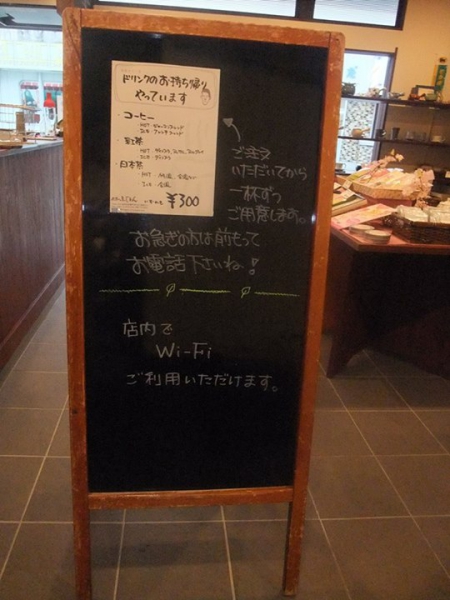 ドリンクのお持ち帰り
やっています
・コーヒー
・紅茶
・日本茶
¥300
ご注文
いただいてから
一杯ずつ
ご用意します。
お急ぎの方は前もって
お電話下さいね!
店内で
Wi-Fi
ご利用いただけます。